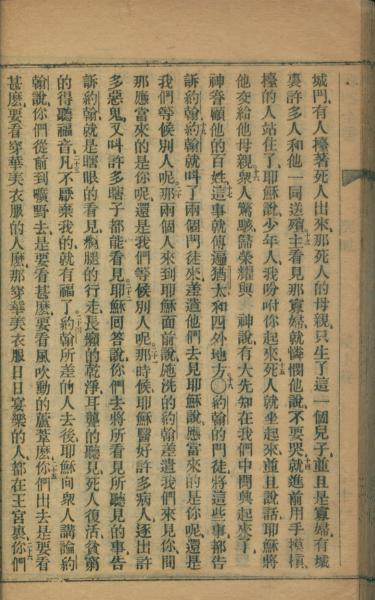 城門有人擡著死人出來那死人的母親只生了這一個兒子並且是寡婦有城
裏許多人和他一同送殯主看見那寡婦就憐憫他說不要哭就進前用手摸槓
擡的人站住了耶穌說少年人我吩咐你起來死人就坐起來並且說話耶穌將
他交給他母親衆人驚駭歸榮耀與 神說有大先知在我們中間興起來了
神眷顧他的百姓這事就傳遍猶太和四外地方〇約翰的門徒將這些事都告
訴約翰約翰就叫了兩個門徒來差遣他們去見耶穌說應當來的是你呢還是
我們等候別人呢那兩個人來到耶穌面前說施洗的約翰差遣我們來見你問
那應當來的是你呢還是我們等候別人呢那時候耶穌醫好許多病人逐出許
多惡鬼又叫許多瞎子都能看見耶穌回答說你們去將所看見所聽見的事告
訴約翰就是瞎眼的看見瘸腿的行走長癩的乾淨耳聾的聽見死人復活貧窮
的得聽福音凡不厭棄我的就有福了約翰所差的人去後耶穌向衆人講論約
翰說你們從前到曠野去是要看甚麼要看風吹動的蘆葦麼你們出去是要看
甚麼要看穿華美衣服的人麼那穿華美衣服日日宴樂的人都在王宮裏你們